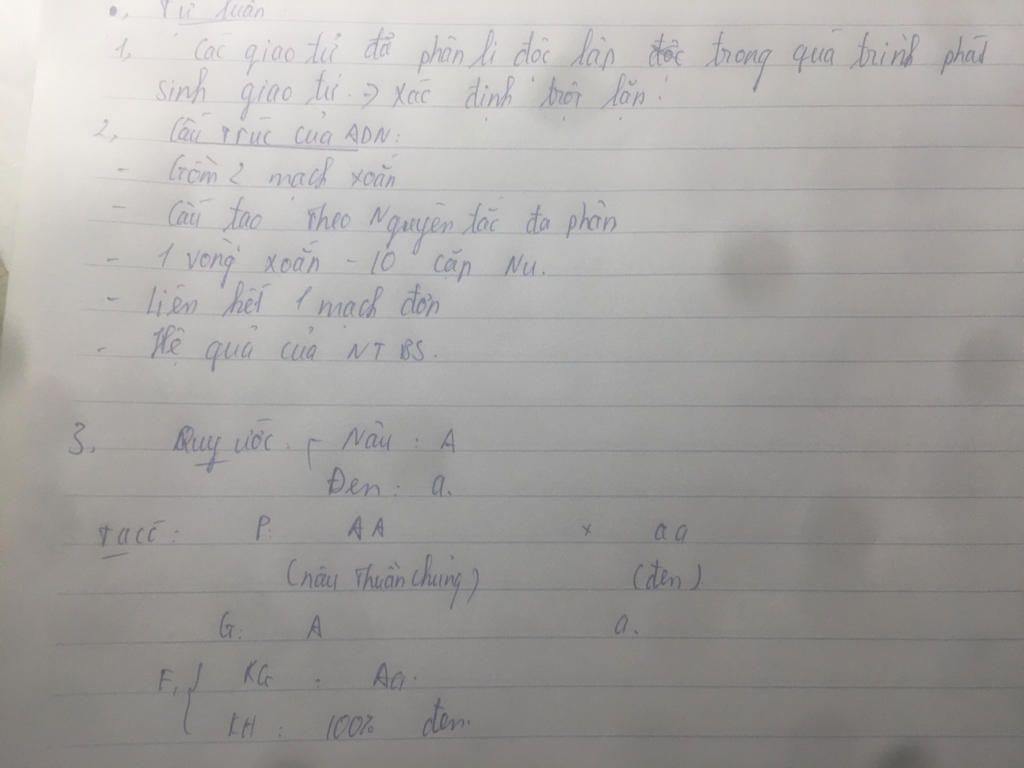 •, Tự luận
1, Các giao tử đã phân li độc lập trong quá trình phát
sinh giao tử => xác định trội lặn.
2, Cấu trúc của ADN:
- Gồm 2 mạch xoắn
- Cấu tạo theo Nguyên tắc đa phân
- 1 vòng xoắn - 10 cặp Nu.
- Liên kết 1 mạch đơn
- Hệ quả của NTBS.
3, Quy ước: Nâu : A
Đen : a.
Ta có : P: AA x aa
(nâu thuần chủng) (đen)
G: A a.
F1 { KG : Aa.
KH : 100% đen.